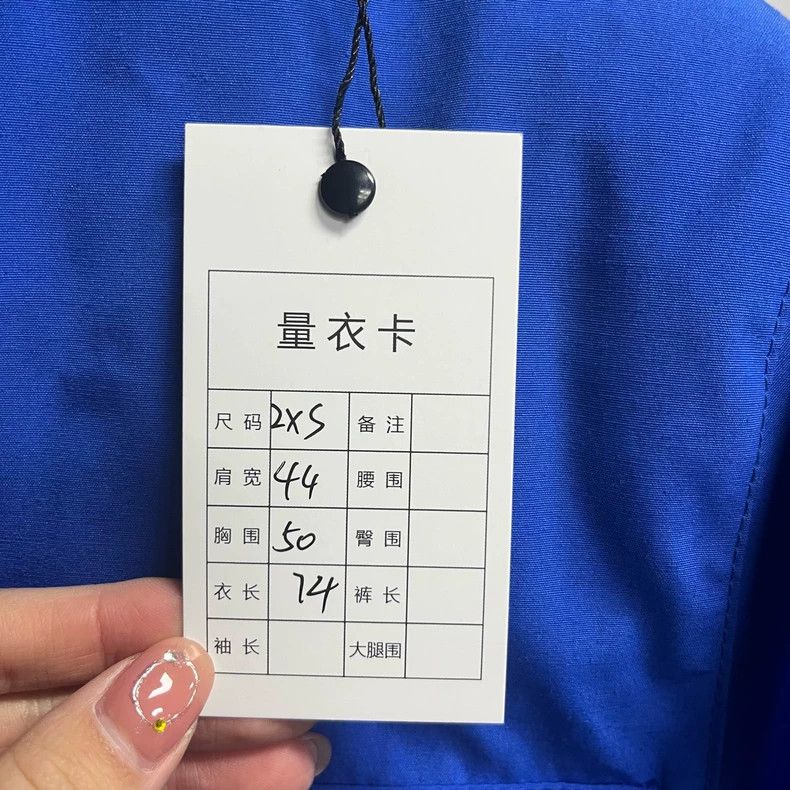 量衣卡
尺码 2XS 备注
肩宽 44 腰围
胸围 50 臀围
衣长 74 裤长
袖长 大腿围